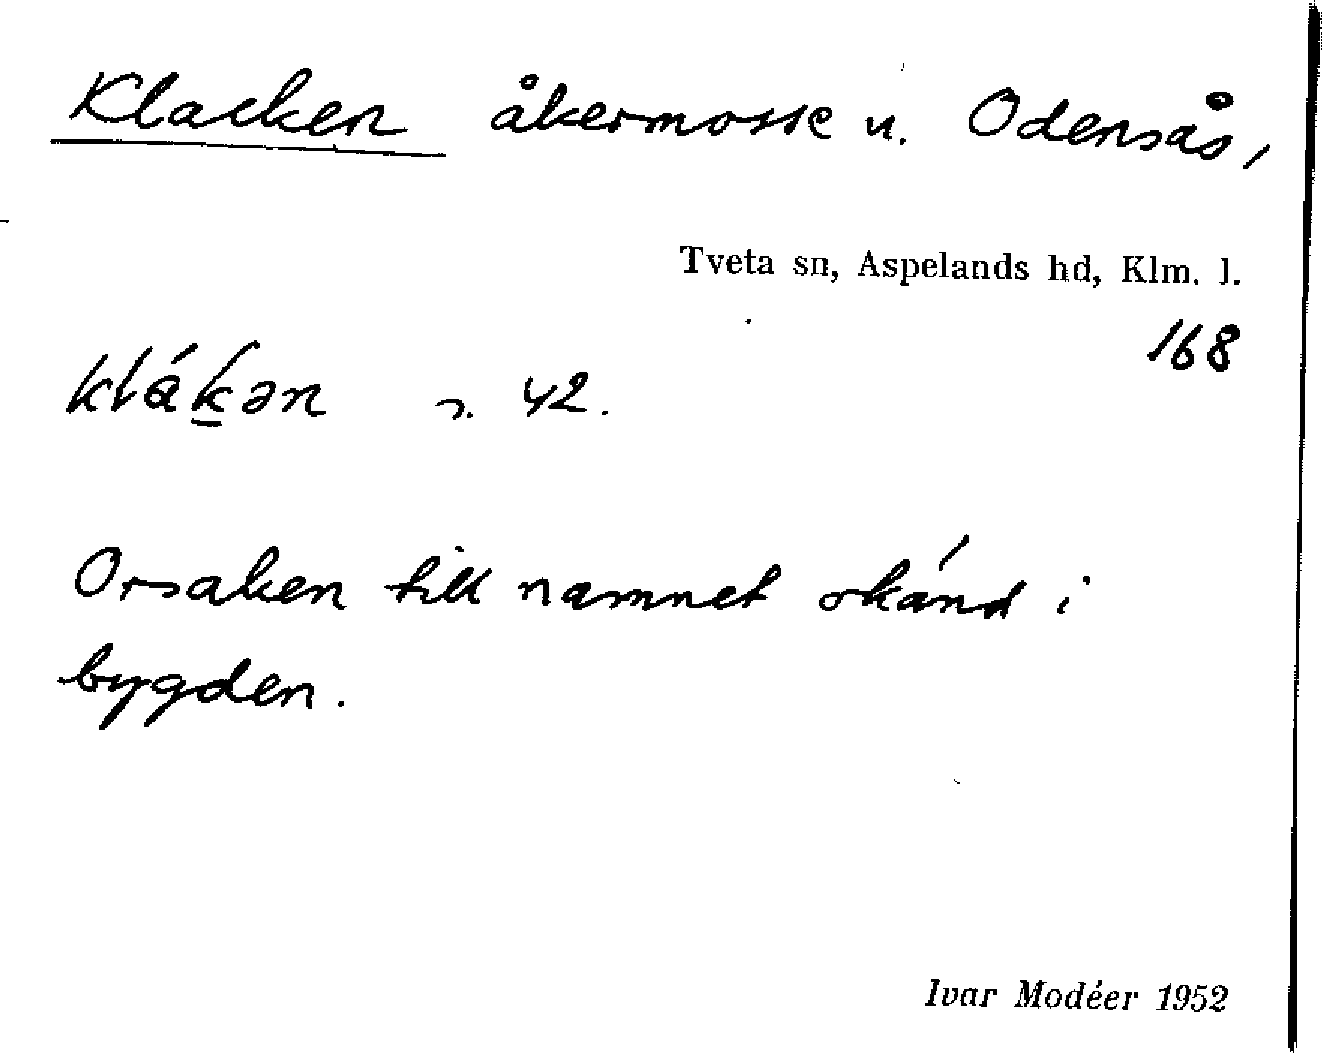 Klacken åkermosse u. Odensås,
Tveta sn, Aspelands hd, Klm. l.
168
klák̲ən s. 42.
Orsaken till namnet okánd i
bygden.
Ivar Modéer 1952